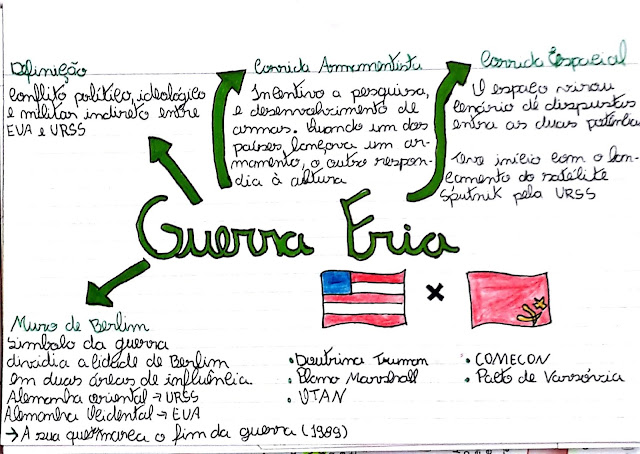 Definição
Conflito político, ideológico
e militar indireto entre
EUA e URSS
Corrida Armamentista
Incentivo a pesquisa,
e desenvolvimento de
armas. Quando um dos
países lançava um ar-
mamento, o outro respon-
dia à altura
Corrida Espacial
O espaço virou
cenário de disputas
entra as duas potência
Teve início com o lan-
çamento do satélite
Sputnik pela URSS
Guerra Fria
Muro de Berlim
Símbolo da guerra
dividia a cidade de Berlim
em duas áreas de influência.
Alemanha oriental → URSS
Alemanha Ocidental → EUA
→ A sua queda marca o fim da guerra (1989)
×
• Doutrina Truman
• Plano Marshall
• OTAN
• COMECON
• Pacto de Varsóvia